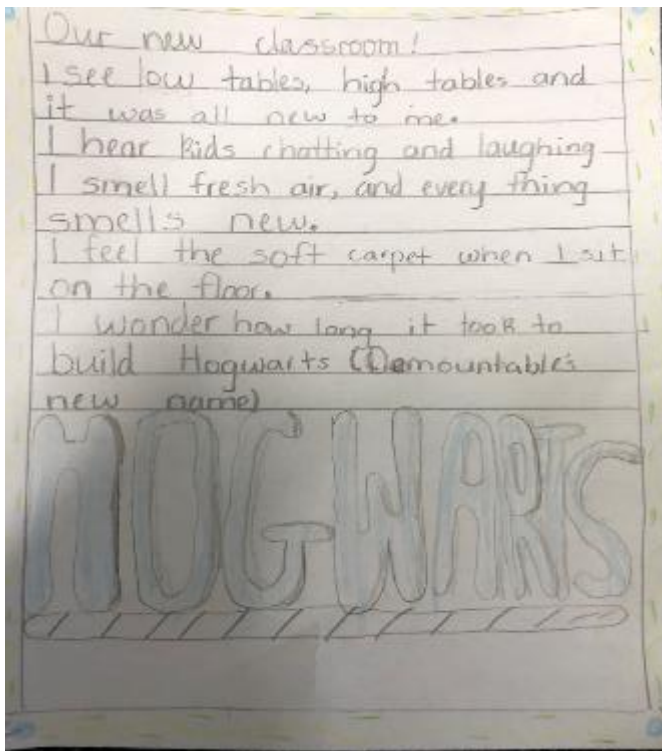 Our new classroom!
I see low tables, high tables and
it was all new to me.
I hear kids chatting and laughing
I smell fresh air, and every thing
smells new.
I feel the soft carpet when I sit
on the floor.
I wonder how long it took to
build Hogwarts (Demountable's
new name)
HOGWARTS